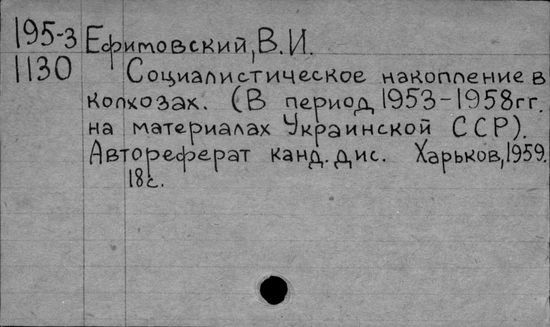 195-3 Ефимовский, В.И.
1130 Социалистическое накопление в
колхозах. (В период 1953-1958гг.
на материалах Украинской ССР).
Автореферат канд. дис. Харьков, 1959.
18с.